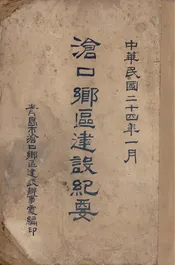 中華民國二十四年一月
滄口鄉區建設紀要
青島市滄口鄉區建設辦事處編印